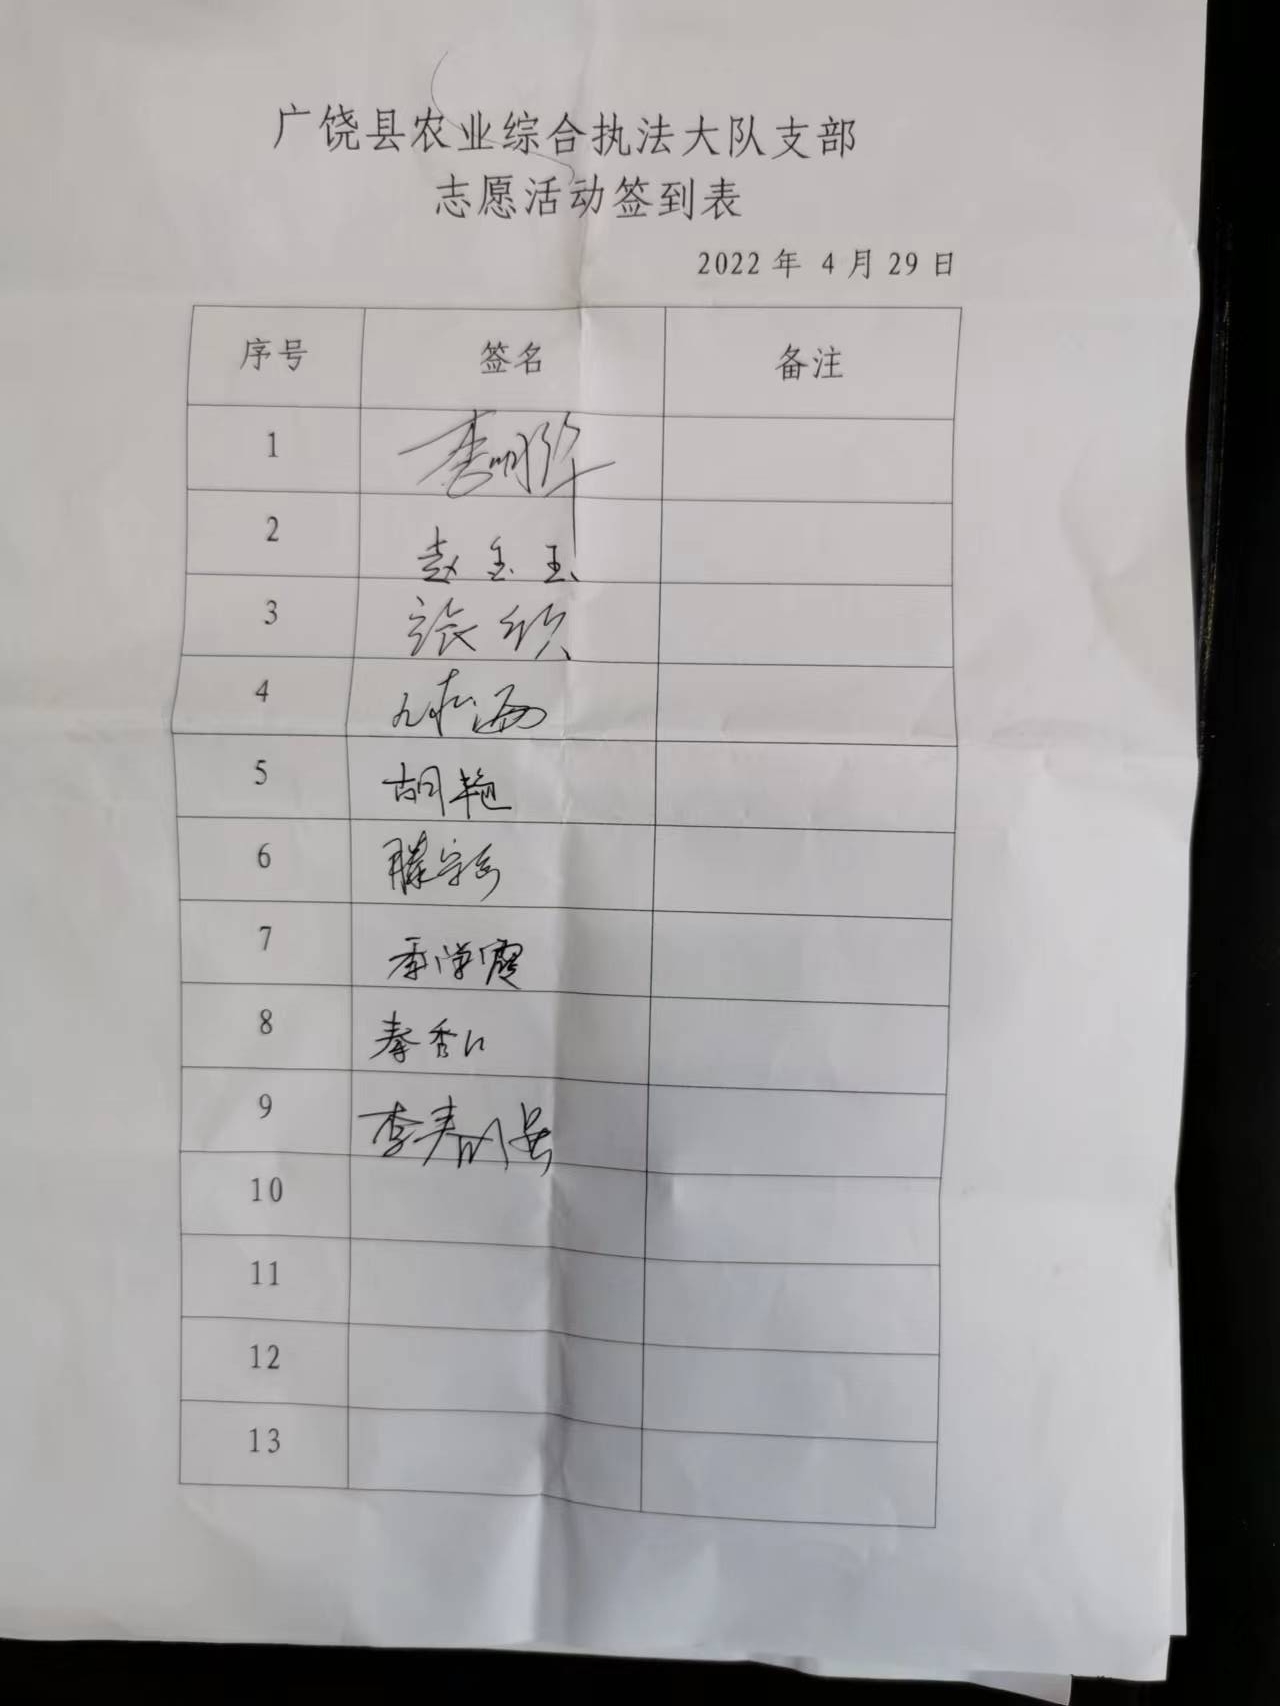 广饶县农业综合执法大队支部
志愿活动签到表
2022年 4月29日
序号 签名 备注
1 李明华
2 赵金玉
3 张欣
4
5 胡艳
6 滕
7 季学霞
8 秦香
9 李寿
10
11
12
13